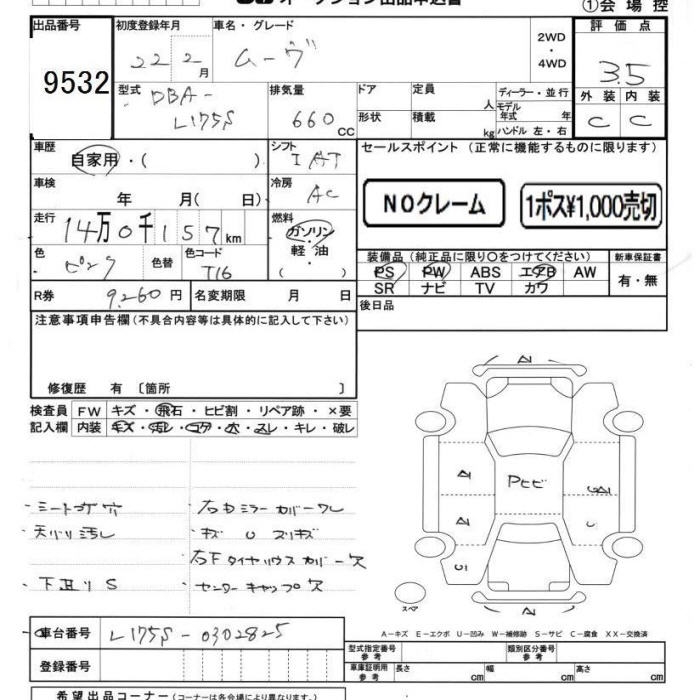 ①会場控
出品番号 初度登録年月 車名・グレード 評価点
9532 22 2月 ムーヴ 2WD・4WD 3.5
型式 排気量 ドア 定員 人 ディーラー・並行 外装 内装
DBA-L175S 660 CC 形状 積載 kg モデル年式 年 ハンドル 左・右 C C
車歴 シフト セールスポイント(正常に機能するものに限ります)
自家用・( ) I AT
車検 年 月( 日) 冷房 AC NOクレーム 1ポス¥1,000売切
走行 14万0千157km 燃料 ガソリン・軽油( )
色 ピンク 色替 色コード T16
装備品(純正品に限り○をつけてください) 新車保証書
PS PW ABS エアB AW 有・無
SR ナビ TV カワ
R券 9,260円 名変期限 月 日 後日品
注意事項申告欄(不具合内容等は具体的に記入して下さい)
修復歴 有〔箇所 〕
検査員 FW キズ・飛石・ヒビ割・リペア跡・×要
記入欄 内装 キズ・汚レ・コゲ・穴・スレ・キレ・破レ
A1
A1 Pヒビ
A1 C
C1
A1
・シートコゲ穴 ・右Dミラーカバーワレ
・天バリ汚レ ・キズ U スリキズ
・下廻りS ・センターキャップ欠
スペア
A-キズ E-エクボ U-凹み W-補修跡 S-サビ C-腐食 XX-交換済
車台番号 L175S-0302825
登録番号
型式指定番号 参考 類別区分番号 参考
車庫証明用 参考 長さ cm 幅 cm 高さ cm
希望出品コーナー(コーナーは各会場により異なります)